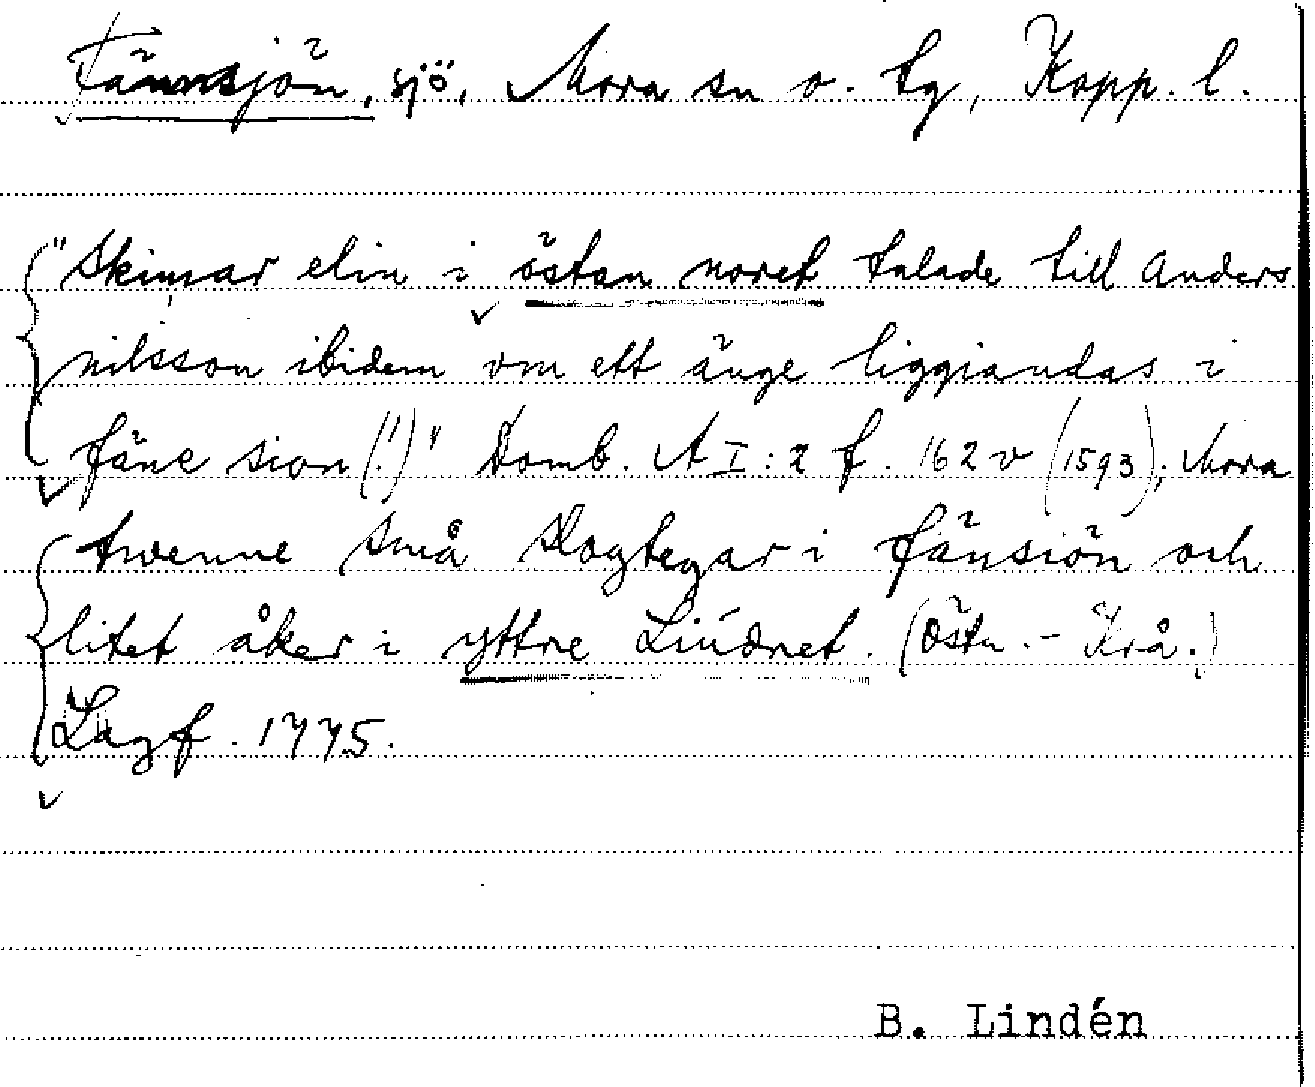 Fännsjön, sjö, Mora sn o. tg, Kopp. l.
"Skinnar elin i östan noret talade till Anders
nilsson ibidem om ett änge liggiandas i
fäne sion (!)" Domb. A I:2 f. 162 v (1593), Mora
twenne små slogtegar i fänsiön och
litet åker i yttre Liúdnet. (Östn. - Krå.)
Lagf. 1775.
B. Lindén